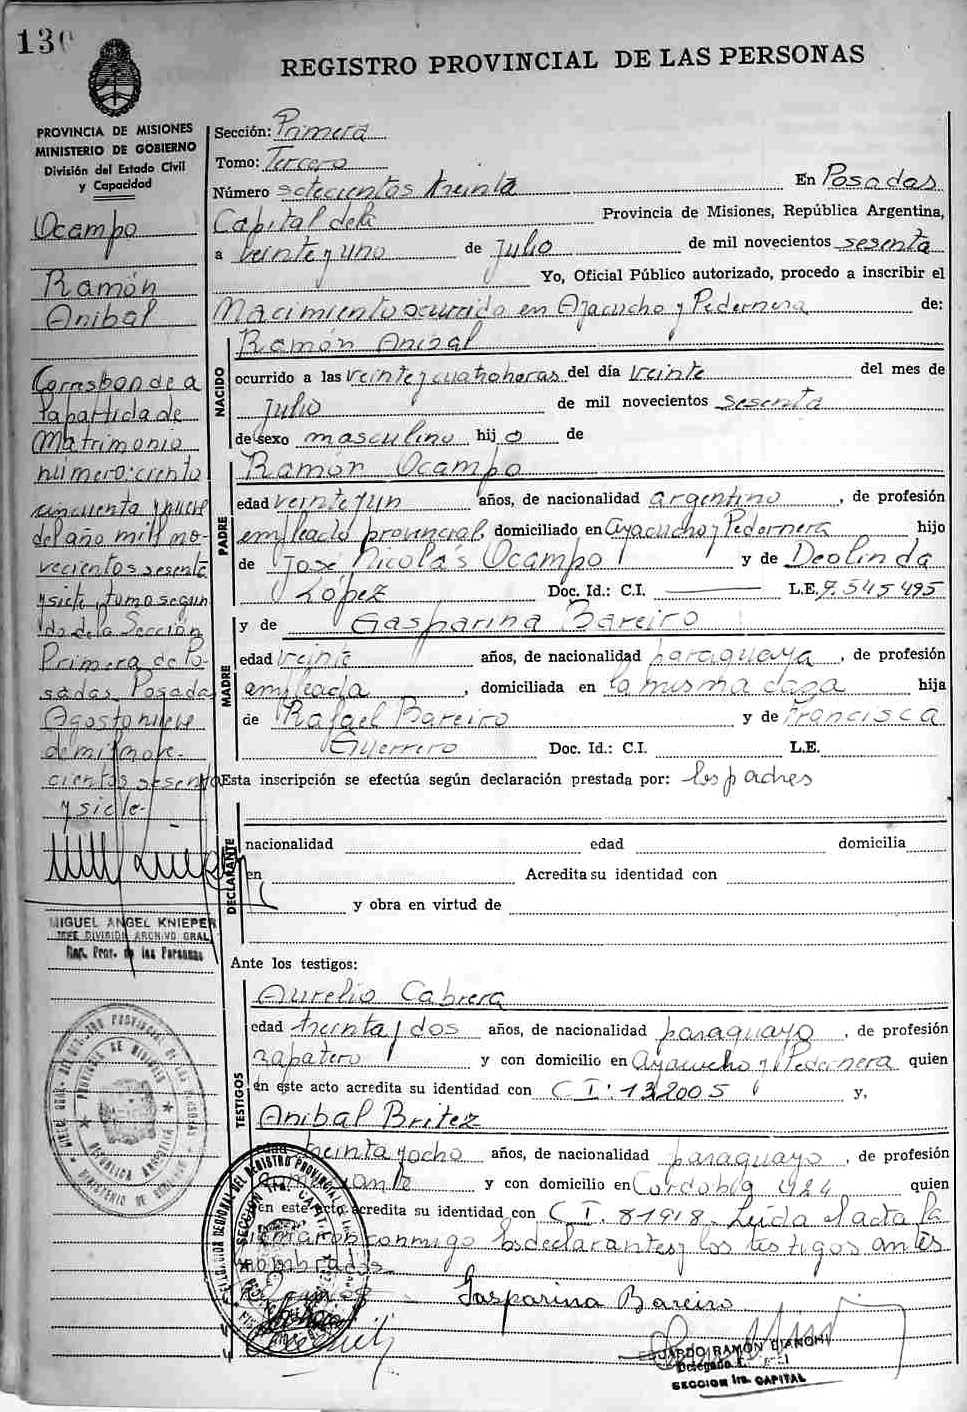 130
REGISTRO PROVINCIAL DE LAS PERSONAS
PROVINCIA DE MISIONES
MINISTERIO DE GOBIERNO
División del Estado Civil
y Capacidad
Ocampo
Ramón
Anibal
Corresponde a
la partida de
Matrimonio
numero: ciento
cincuenta y nueve
del año mill no-
vecientos sesenta
y siete, tomo segun
do de la Sección
Primera de Po-
sadas, Posadas
Agosto nueve
de mil nove-
cientos sesenta
y siete-
MIGUEL ANGEL KNIEPER
JEFE DIVISION ARCHIVO GRAL
Reg. Prov. de las Personas
Sección: Primera
Tomo: Tercero
Número setecientos treinta En Posadas
Capital de la Provincia de Misiones, República Argentina,
a veinte y uno de Julio de mil novecientos sesenta
Yo, Oficial Público autorizado, procedo a inscribir el
Nacimiento ocurrido en Ayacucho y Pedernera de:
NACIDO
Ramón Anibal
ocurrido a las veinte y cuatro horas del día veinte del mes de
Julio de mil novecientos sesenta
de sexo masculino hijo de
PADRE
Ramón Ocampo
edad veinte y un años, de nacionalidad argentino, de profesión
empleado provincial, domiciliado en Ayacucho y Pedernera hijo
de José Nicolás Ocampo y de Deolinda
López Doc. Id.: C.I. L.E. 7.545495
MADRE
y de Gasparina Bareiro
edad veinte años, de nacionalidad paraguaya, de profesión
empleada, domiciliada en la misma casa hija
de Rafael Bareiro y de Francisca
Guerrero Doc. Id.: C.I. L.E.
Esta inscripción se efectúa según declaración prestada por: los padres
DECLARANTE
nacionalidad edad domicilia
en Acredita su identidad con
y obra en virtud de
Ante los testigos:
TESTIGOS
Aurelio Cabrera
edad treinta y dos años, de nacionalidad paraguayo, de profesión
zapatero y con domicilio en Ayacucho y Pedernera quien
en este acto acredita su identidad con C I: 132005 y,
Anibal Britez
edad treinta y ocho años, de nacionalidad paraguayo, de profesión
y con domicilio en Cordoba 424 quien
en este acto acredita su identidad con C I. 81918. Leída el acta la
firmaron conmigo los declarantes y los testigos antes
nombrados
Gasparina Bareiro
EDUARDO RAMON BIANCHI
SECCION 1ra. CAPITAL